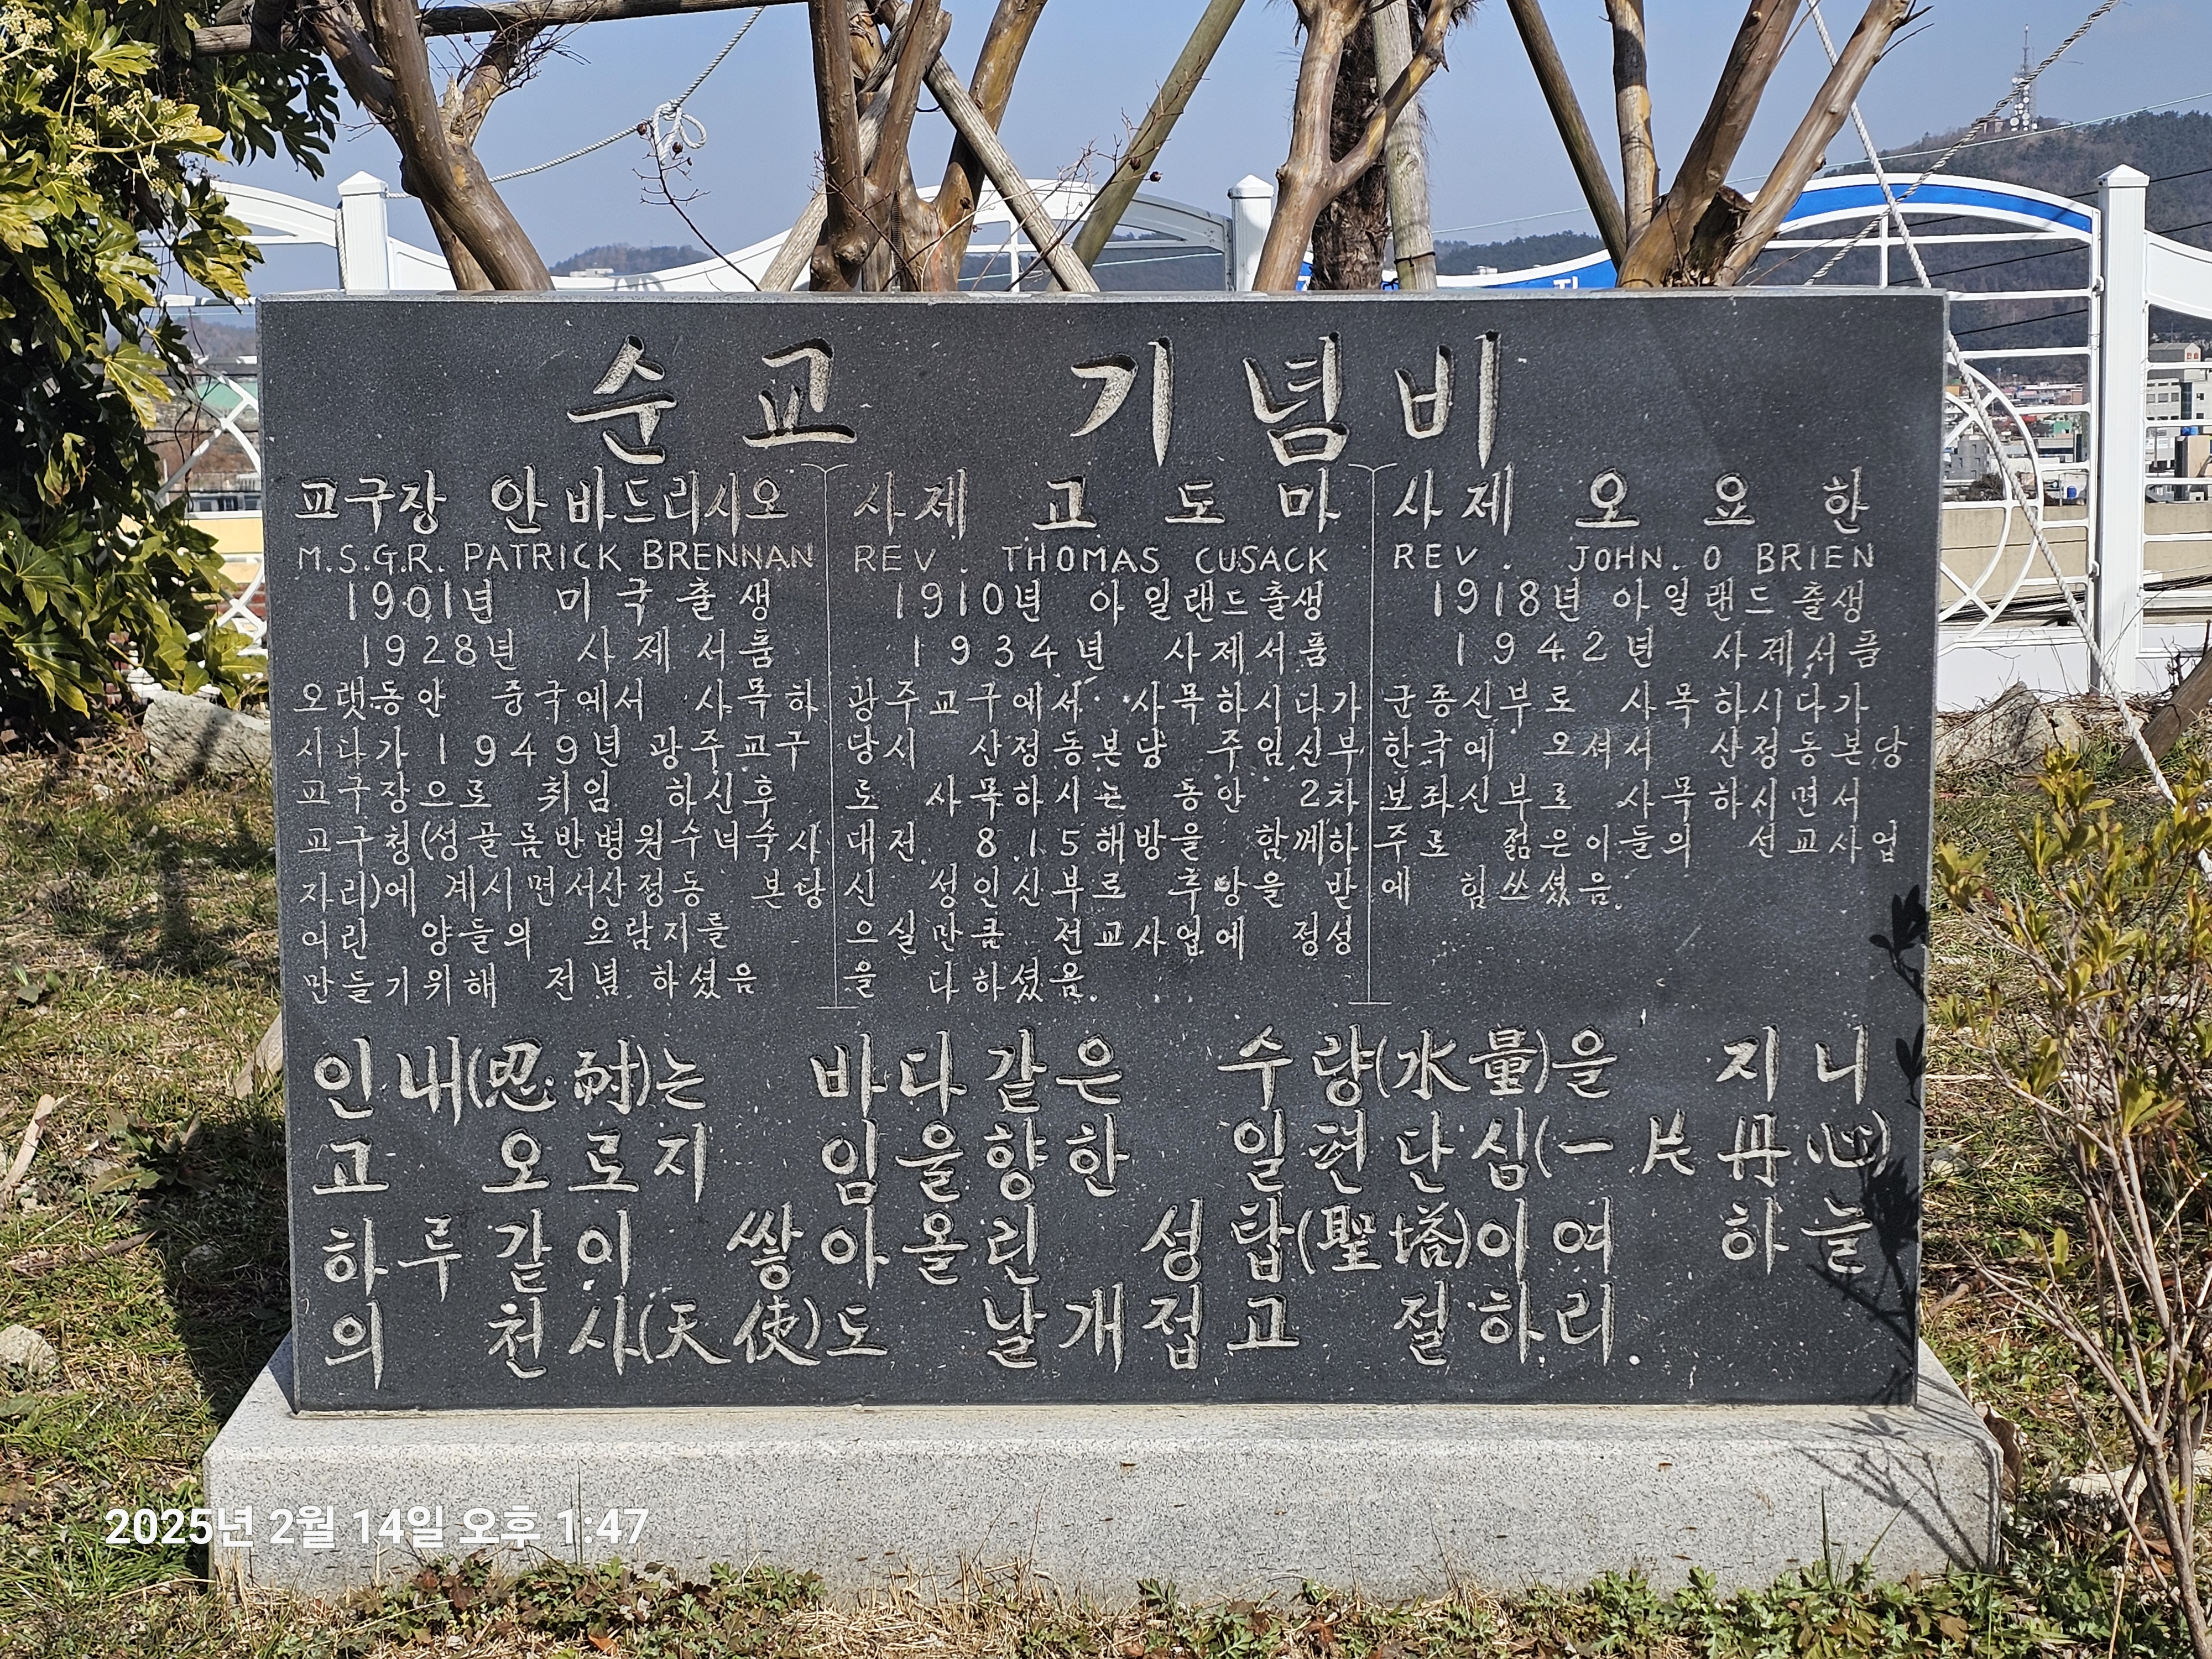 순교 기념비
교구장 안바드리시오
M.S.G.R. PATRICK BRENNAN
1901년 미국출생
1928년 사제서품
오랫동안 중국에서 사목하
시다가 1949년 광주교구
교구장으로 취임 하신후
교구청(성골롬반병원수녀숙사
자리)에 계시면서산정동 본당
어린 양들의 요람지를
만들기위해 전념 하셨음
사제 고도마
REV. THOMAS CUSACK
1910년 아일랜드출생
1934년 사제서품
광주교구에서 사목하시다가
당시 산정동본당 주임신부
로 사목하시는 동안 2차
대전 8.15해방을 함께하
신 성인신부로 추앙을 받
으실만큼 선교사업에 정성
을 다하셨음.
사제 오요한
REV. JOHN. O BRIEN
1918년 아일랜드출생
1942년 사제서품
군종신부로 사목하시다가
한국에 오셔서 산정동본당
보좌신부로 사목하시면서
주로 젊은이들의 선교사업
에 힘쓰셨음.
인내(忍耐)는 바다같은 수량(水量)을 지니
고 오로지 임을향한 일편단심(一片丹心)
하루같이 쌓아올린 성탑(聖塔)이여 하늘
의 천사(天使)도 날개접고 절하리.
2025년 2월 14일 오후 1:47